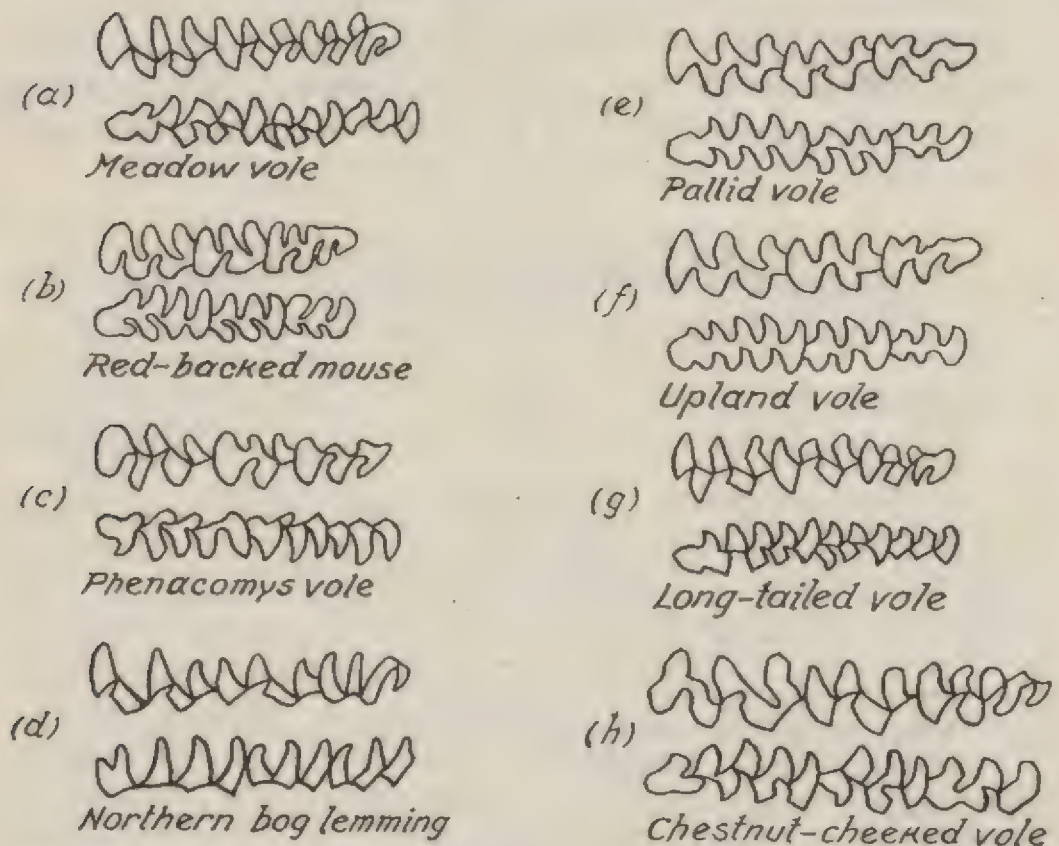 (a)
Meadow vole
(b)
Red-backed mouse
(c)
Phenacomys vole
(d)
Northern bog lemming
(e)
Pallid vole
(f)
Upland vole
(g)
Long-tailed vole
(h)
Chestnut-cheeked vole